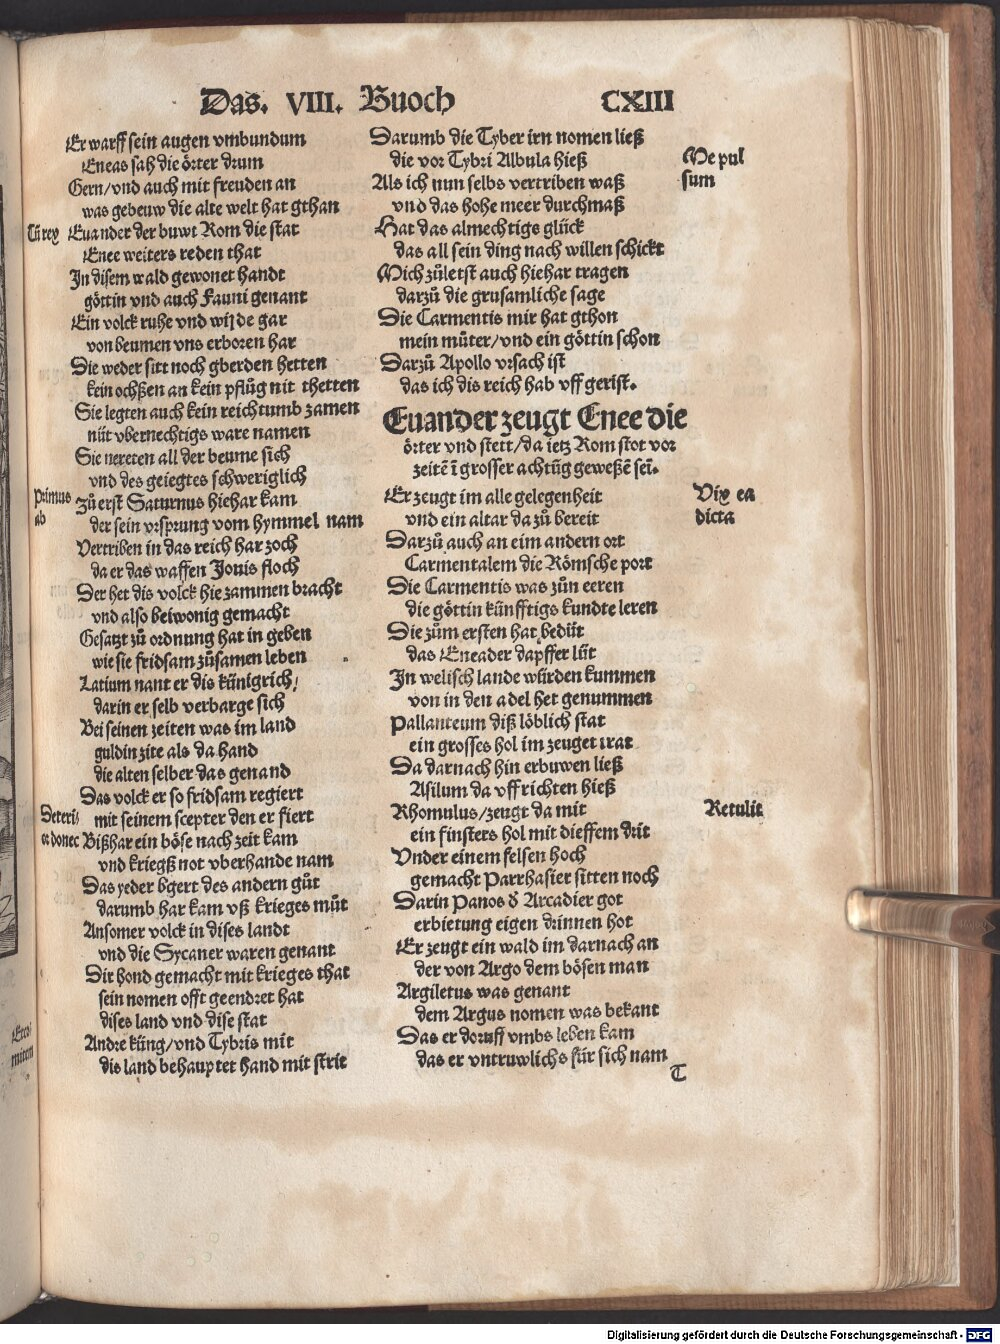 Das. VIII. Buoch CXIII
Er warff sein augen vmbundum
Eneas sah die örter drum
Gern/vnd auch mit freuden an
was gebeuw die alte welt hat gthan
Tū rex
Euander der buwt Rom die stat
Enee weiters reden that
In disem wald gewonet handt
göttin vnd auch Fauni genant
Ein volck ruhe vnd wilde gar
von beumen vns erboren har
Die weder sitt noch gberden hetten
kein ochßen an kein pflůg nit thetten
Sie legten auch kein reichtumb zamen
nüt vbernechtigs ware namen
Sie nereten all der beume sich
vnd des geiegtes schweriglich
Primus
ab
Zů erst Saturnus hiehar kam
der sein vrsprung vom hymmel nam
Vertriben in das reich har zoch
da er das waffen Jouis floch
Der het dis volck hie zammen bracht
vnd also beiwonig gemacht
Gesatzt zů ordnung hat in geben
wie sie fridsam zůsamen leben
Latium nant er dis künigrich/
darin er selb verbarge sich
Bei seinen zeiten was im land
guldin zite als da hand
die alten selber das genand
Das volck er so fridsam regiert
Deteri-
or donec
mit seinem scepter den er fiert
Bißhar ein böse nach zeit kam
vnd kriegß not vberhande nam
Das yeder bgert des andern gůt
darumb har kam vß krieges můt
Ansomer volck in dises landt
vnd die Sycaner waren genant
Dir hond gemacht mit krieges that
sein nomen offt geendret hat
dises land vnd dise stat
Andre küng/vnd Tybris mit
dis land behauptet hand mit strit
Darumb die Tyber irn nomen ließ
die vor Tybri Albula hieß
Me pul
sum
Als ich nun selbs vertriben waß
vnd das hohe meer durchmaß
Hat das almechtigs glück
das all sein ding nach willen schickt
Mich zůletst auch hiehar tragen
darzů die grusamliche sage
Die Carmentis mir hat gthon
mein můter/vnd ein göttin schon
Darzů Apollo vrsach ist
das ich dis reich hab vff gerist.
Euander zeugt Enee die
örter vnd stett/da ietz Rom stot vor
zeitē ī grosser achtūg geweßē sei.
Vix ea
dicta
Er zeugt im alle gelegenheit
vnd ein altar da zů bereit
Darzů auch an eim andern ort
Carmentalem die Römsche port
Die Carmentis was zůn eeren
die göttin künfftigs kundte leren
Die zům ersten hat bedüt
das Eneader dapffer lüt
In welisch lande würden kummen
von in den adel het genummen
Pallanteum diß löblich stat
ein grosses hol im zeuget trat
Da darnach hin erbuwen ließ
Asilum da vffrichten hieß
Retulit
Rhomulus/zeugt da mit
ein finsters hol mit dieffem drit
Vnder einem felsen hoch
gemacht Parrhasier sitten noch
Darin Panos d Arcadier got
erbietung eigen drinnen hot
Er zeugt ein wald im darnach an
der von Argo dem bösen man
Argiletus was genant
dem Argus nomen was bekant
Das er doruff vmbs leben kam
das er vntruwlichs für sich nam
T
Digitalisierung gefördert durch die Deutsche Forschungsgemeinschaft - DFG